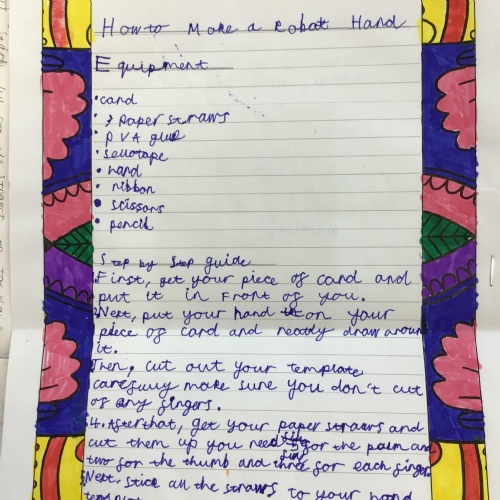 How to Make a Robot Hand
Equipment
• card
• 3 paper straws
• PVA glue
• sellotape
• hand
• ribbon
• scissors
• pencil
Step by Step guide
First, get your piece of card and
put it in front of you.
Next, put your hand on your
piece of card and neatly draw around
it.
Then, cut out your template
carefully make sure you don't cut
of any fingers.
4. After that, get your paper straws and
cut them up you need for the palm and
two for the thumb and three for each finger
Next, stick all the straws to your hand